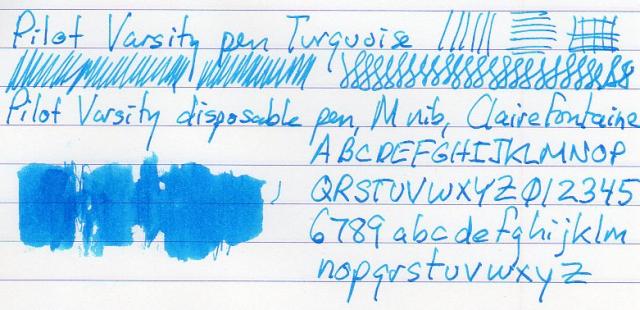 Pilot Varsity pen Turquoise
Pilot Varsity disposable pen, M nib, Clairefontaine
ABCDEFGHIJKLMNOP
QRSTUVWXYZ012345
6789 abcdefghijklm
nopqrstuvwxyz